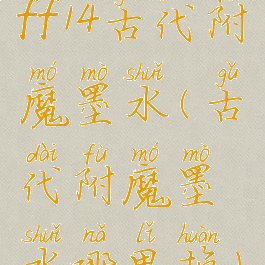 ff14古代附
mó mò shuǐ gǔ
魔墨水(古
dài fù mó mò
代附魔墨
shuǐ nǎ lǐ huàn
水哪里换)